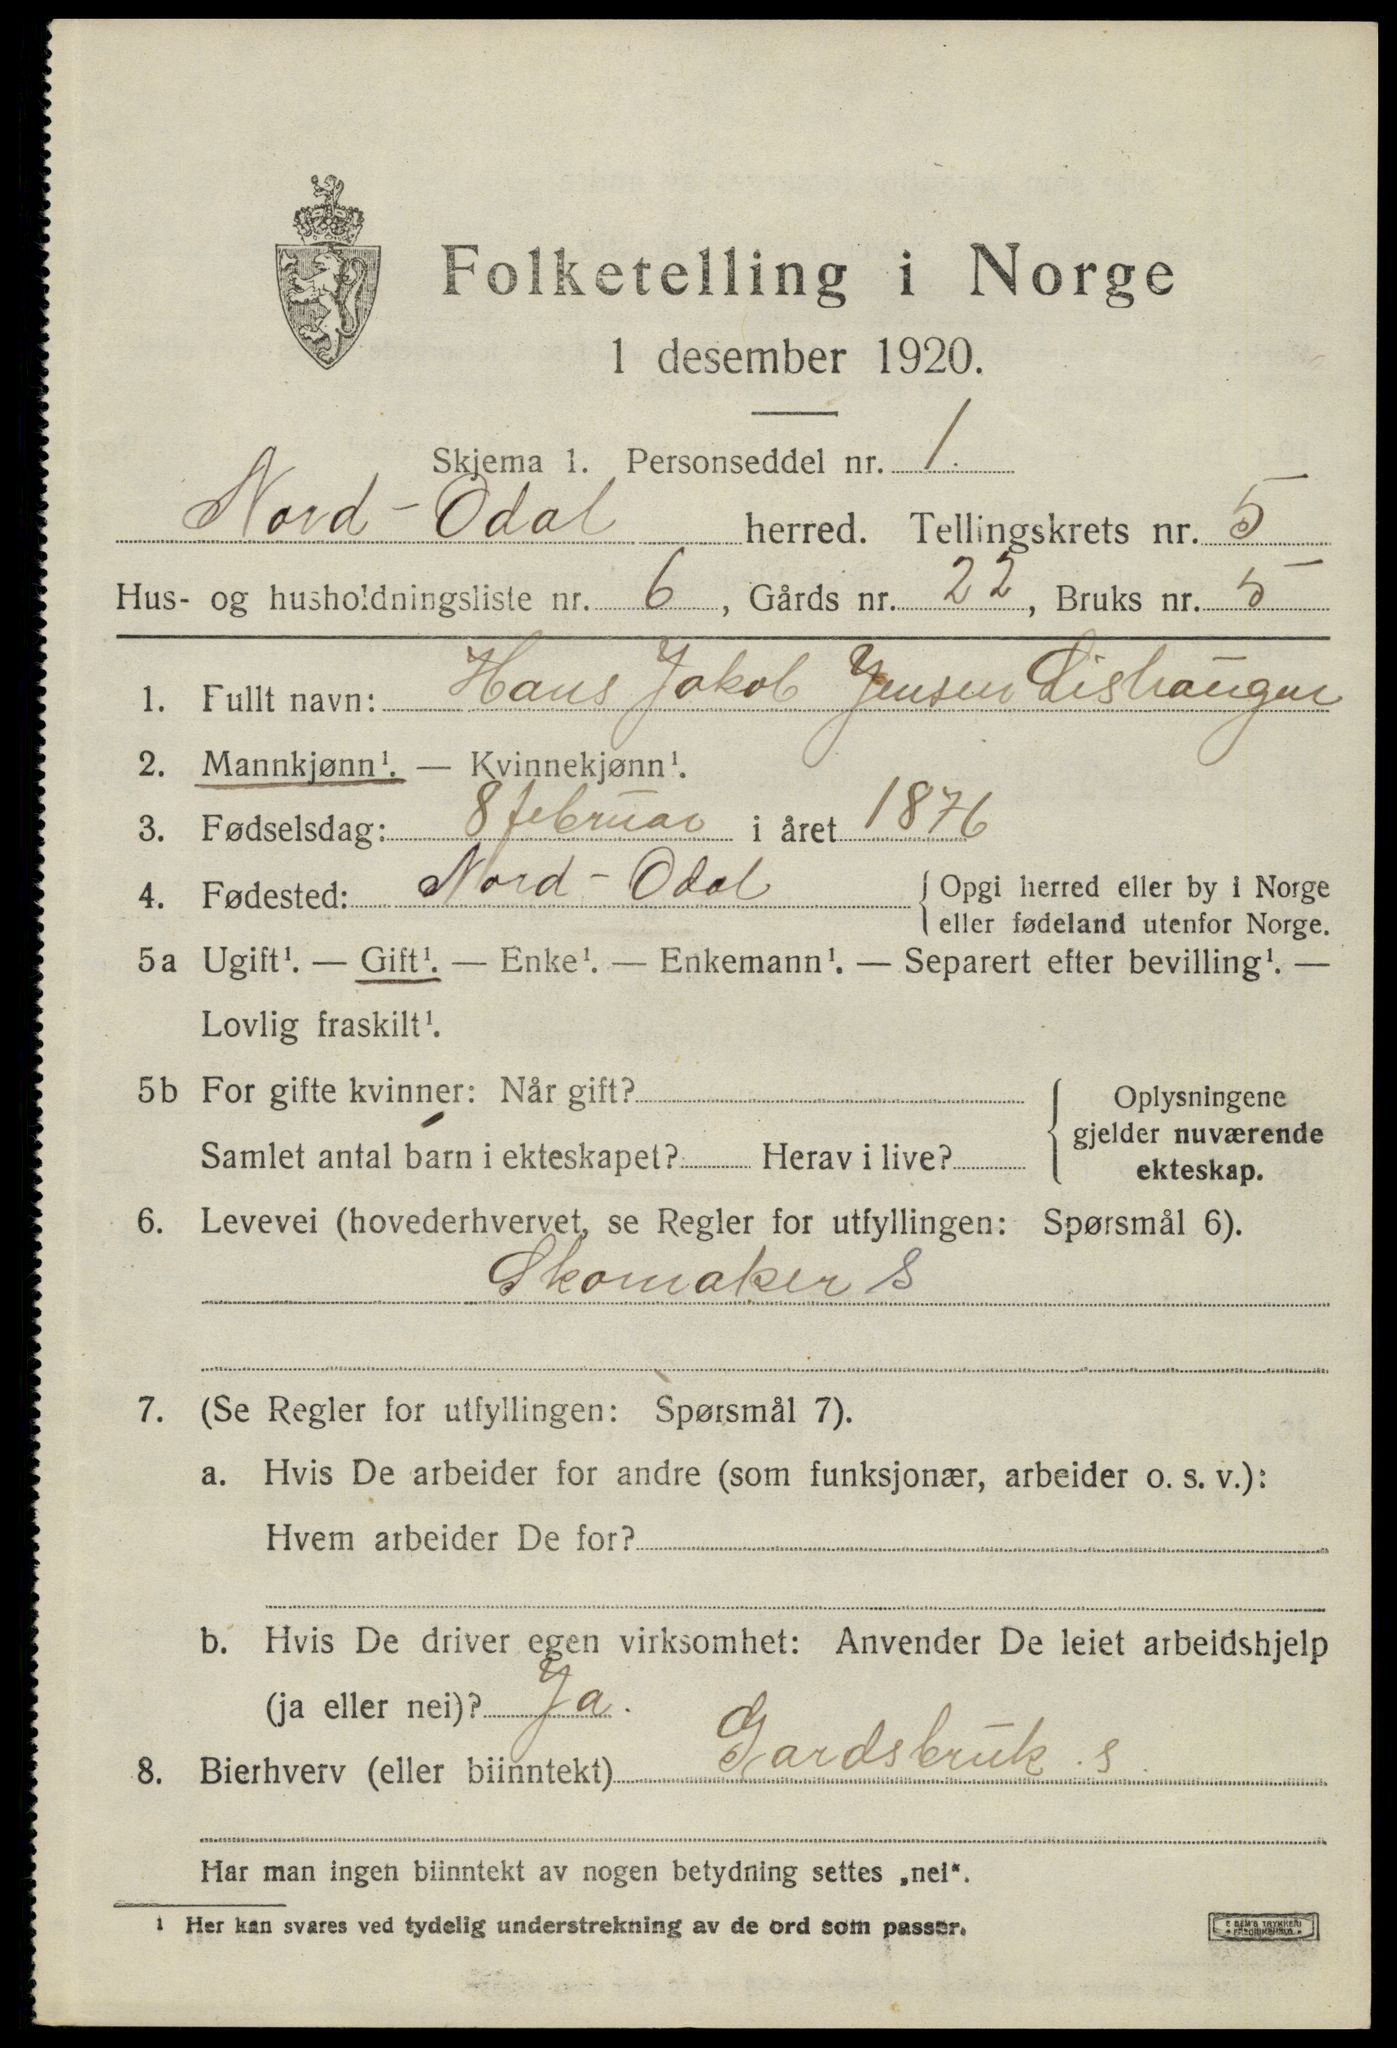 Folketelling i Norge
1 desember 1920.
Skjema 1. Personseddel nr. 1.
Nord-Odal herred. Tellingskrets nr. 5
Hus- og husholdningsliste nr. 6, Gårds nr. 22, Bruks nr. 5
1. Fullt navn: Hans Jakob Jensen Lishaugen
2. Mannkjønn¹. — Kvinnekjønn¹.
3. Fødselsdag: 8 februar i året 1876
4. Fødested: Nord-Odal { Opgi herred eller by i Norge
eller fødeland utenfor Norge.
5a Ugift¹. — Gift¹. — Enke¹. — Enkemann¹. — Separert efter bevilling¹. —
Lovlig fraskilt¹.
5b For gifte kvinner: Når gift? { Oplysningene
gjelder nuværende
Samlet antal barn i ekteskapet? Herav i live? ekteskap.
6. Levevei (hovederhvervet, se Regler for utfyllingen: Spørsmål 6).
Skomaker S
7. (Se Regler for utfyllingen: Spørsmål 7).
a. Hvis De arbeider for andre (som funksjonær, arbeider o. s. v.):
Hvem arbeider De for?
b. Hvis De driver egen virksomhet: Anvender De leiet arbeidshjelp
(ja eller nei)? Ja.
8. Bierhverv (eller biinntekt) Gardsbruk. s.
Har man ingen biinntekt av nogen betydning settes „nei“.
¹ Her kan svares ved tydelig understrekning av de ord som passer.
E SEM'S TRYKKERI
FREDRIKSHALD